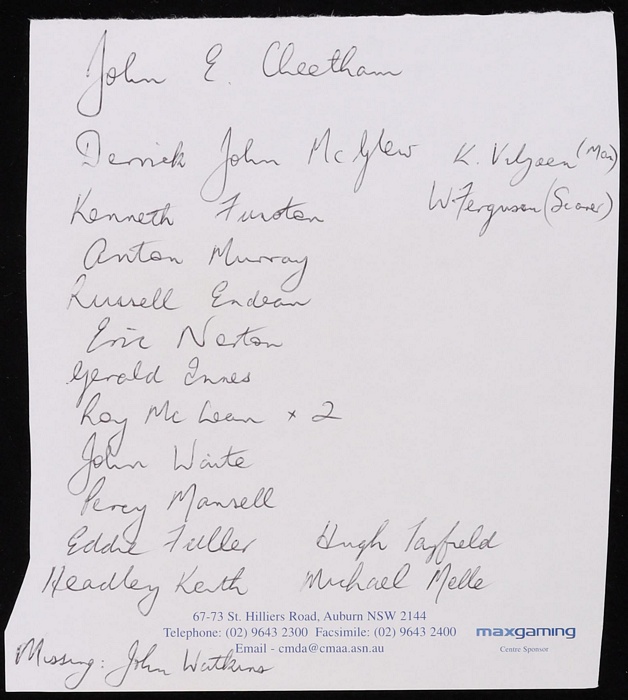 John E. Cheetham
Derrick John McGlew K. Viljoen (Man)
Kenneth Funston W. Ferguson (Scorer)
Anton Murray
Russell Endean
Eric Norton
Gerald Innes
Roy McLean × 2
John Waite
Percy Mansell
Eddie Fuller Hugh Tayfield
Headley Keith Michael Melle
67-73 St. Hilliers Road, Auburn NSW 2144
Telephone: (02) 9643 2300 Facsimile: (02) 9643 2400
maxgaming
Email - cmda@cmaa.asn.au
Centre Sponsor
Missing: John Watkins